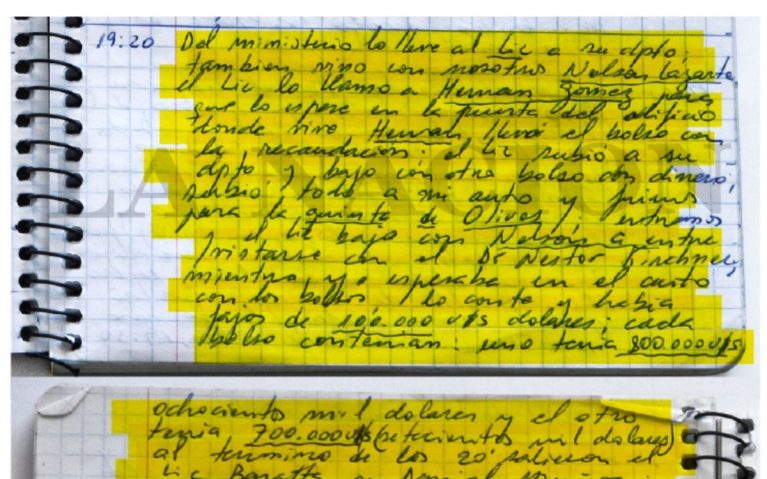 19:20 Del ministerio lo lleve al Lic a su dpto;
tambien vino con nosotros Nelson Lazarte
el Lic lo llamo a Hernan Gomez para
que lo espere en la puerta del edificio
donde vive Hernan llevó el bolso con
la recaudación; el Lic subió a su
dpto y bajo con otro bolso con dinero,
subio todo a mi auto y fuimos
para la quinta de Olivos; entramos
y el Lic bajo con Nelson a entre
vistarse con el Dr Nestor Kirchner,
mientras yo esperaba en el auto
con los bolsos, lo conte y habia
fajos de 100.000 u/s dolares; cada
bolso contenian: uno tenia 800.000 u/s
ochocientos mil dolares y el otro
tenia 700.000 u/s (setecientos mil dolares)
al termino de los 20' salieron el
Lic Baratta y
LA NACION